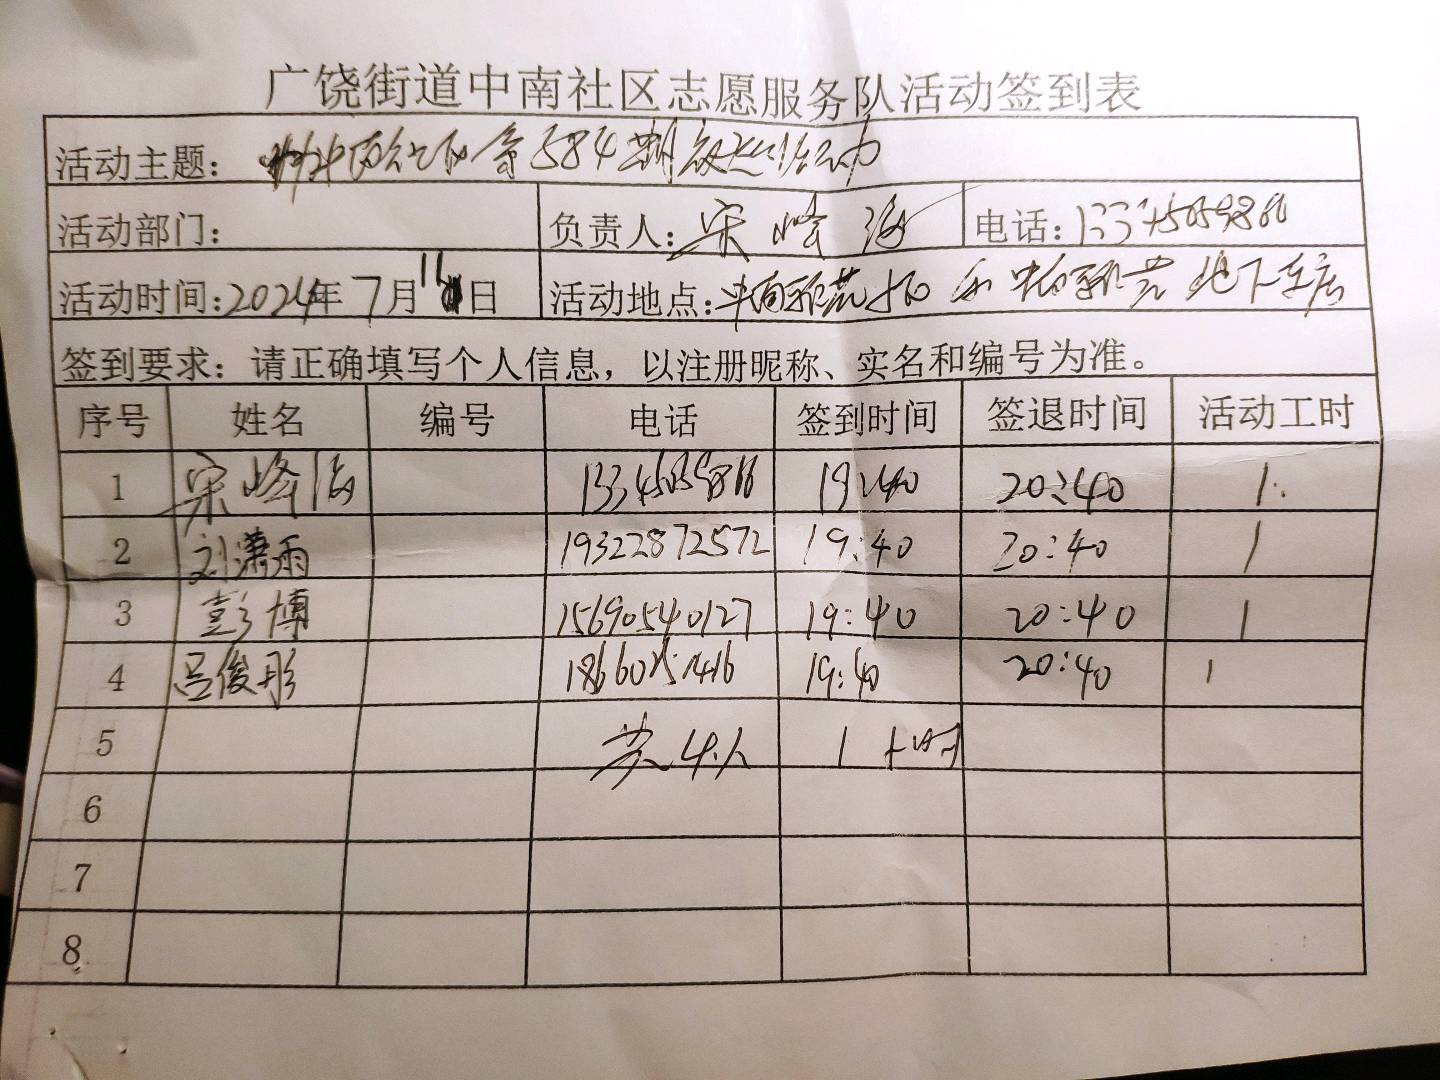 广饶街道中南社区志愿服务队活动签到表
活动主题: 第584 活动
活动部门: 负责人: 宋峰海 电话:
活动时间:2024年7月 日 活动地点: 和 地下车店
签到要求:请正确填写个人信息,以注册昵称、实名和编号为准。
序号 姓名 编号 电话 签到时间 签退时间 活动工时
1 宋峰海 19:40 20:40 1
2 刘潇雨 19322872572 19:40 20:40 1
3 彭博 15690540127 19:40 20:40 1
4 吕俊彤 19:40 20:40 1
5 共4人 1小时
6
7
8